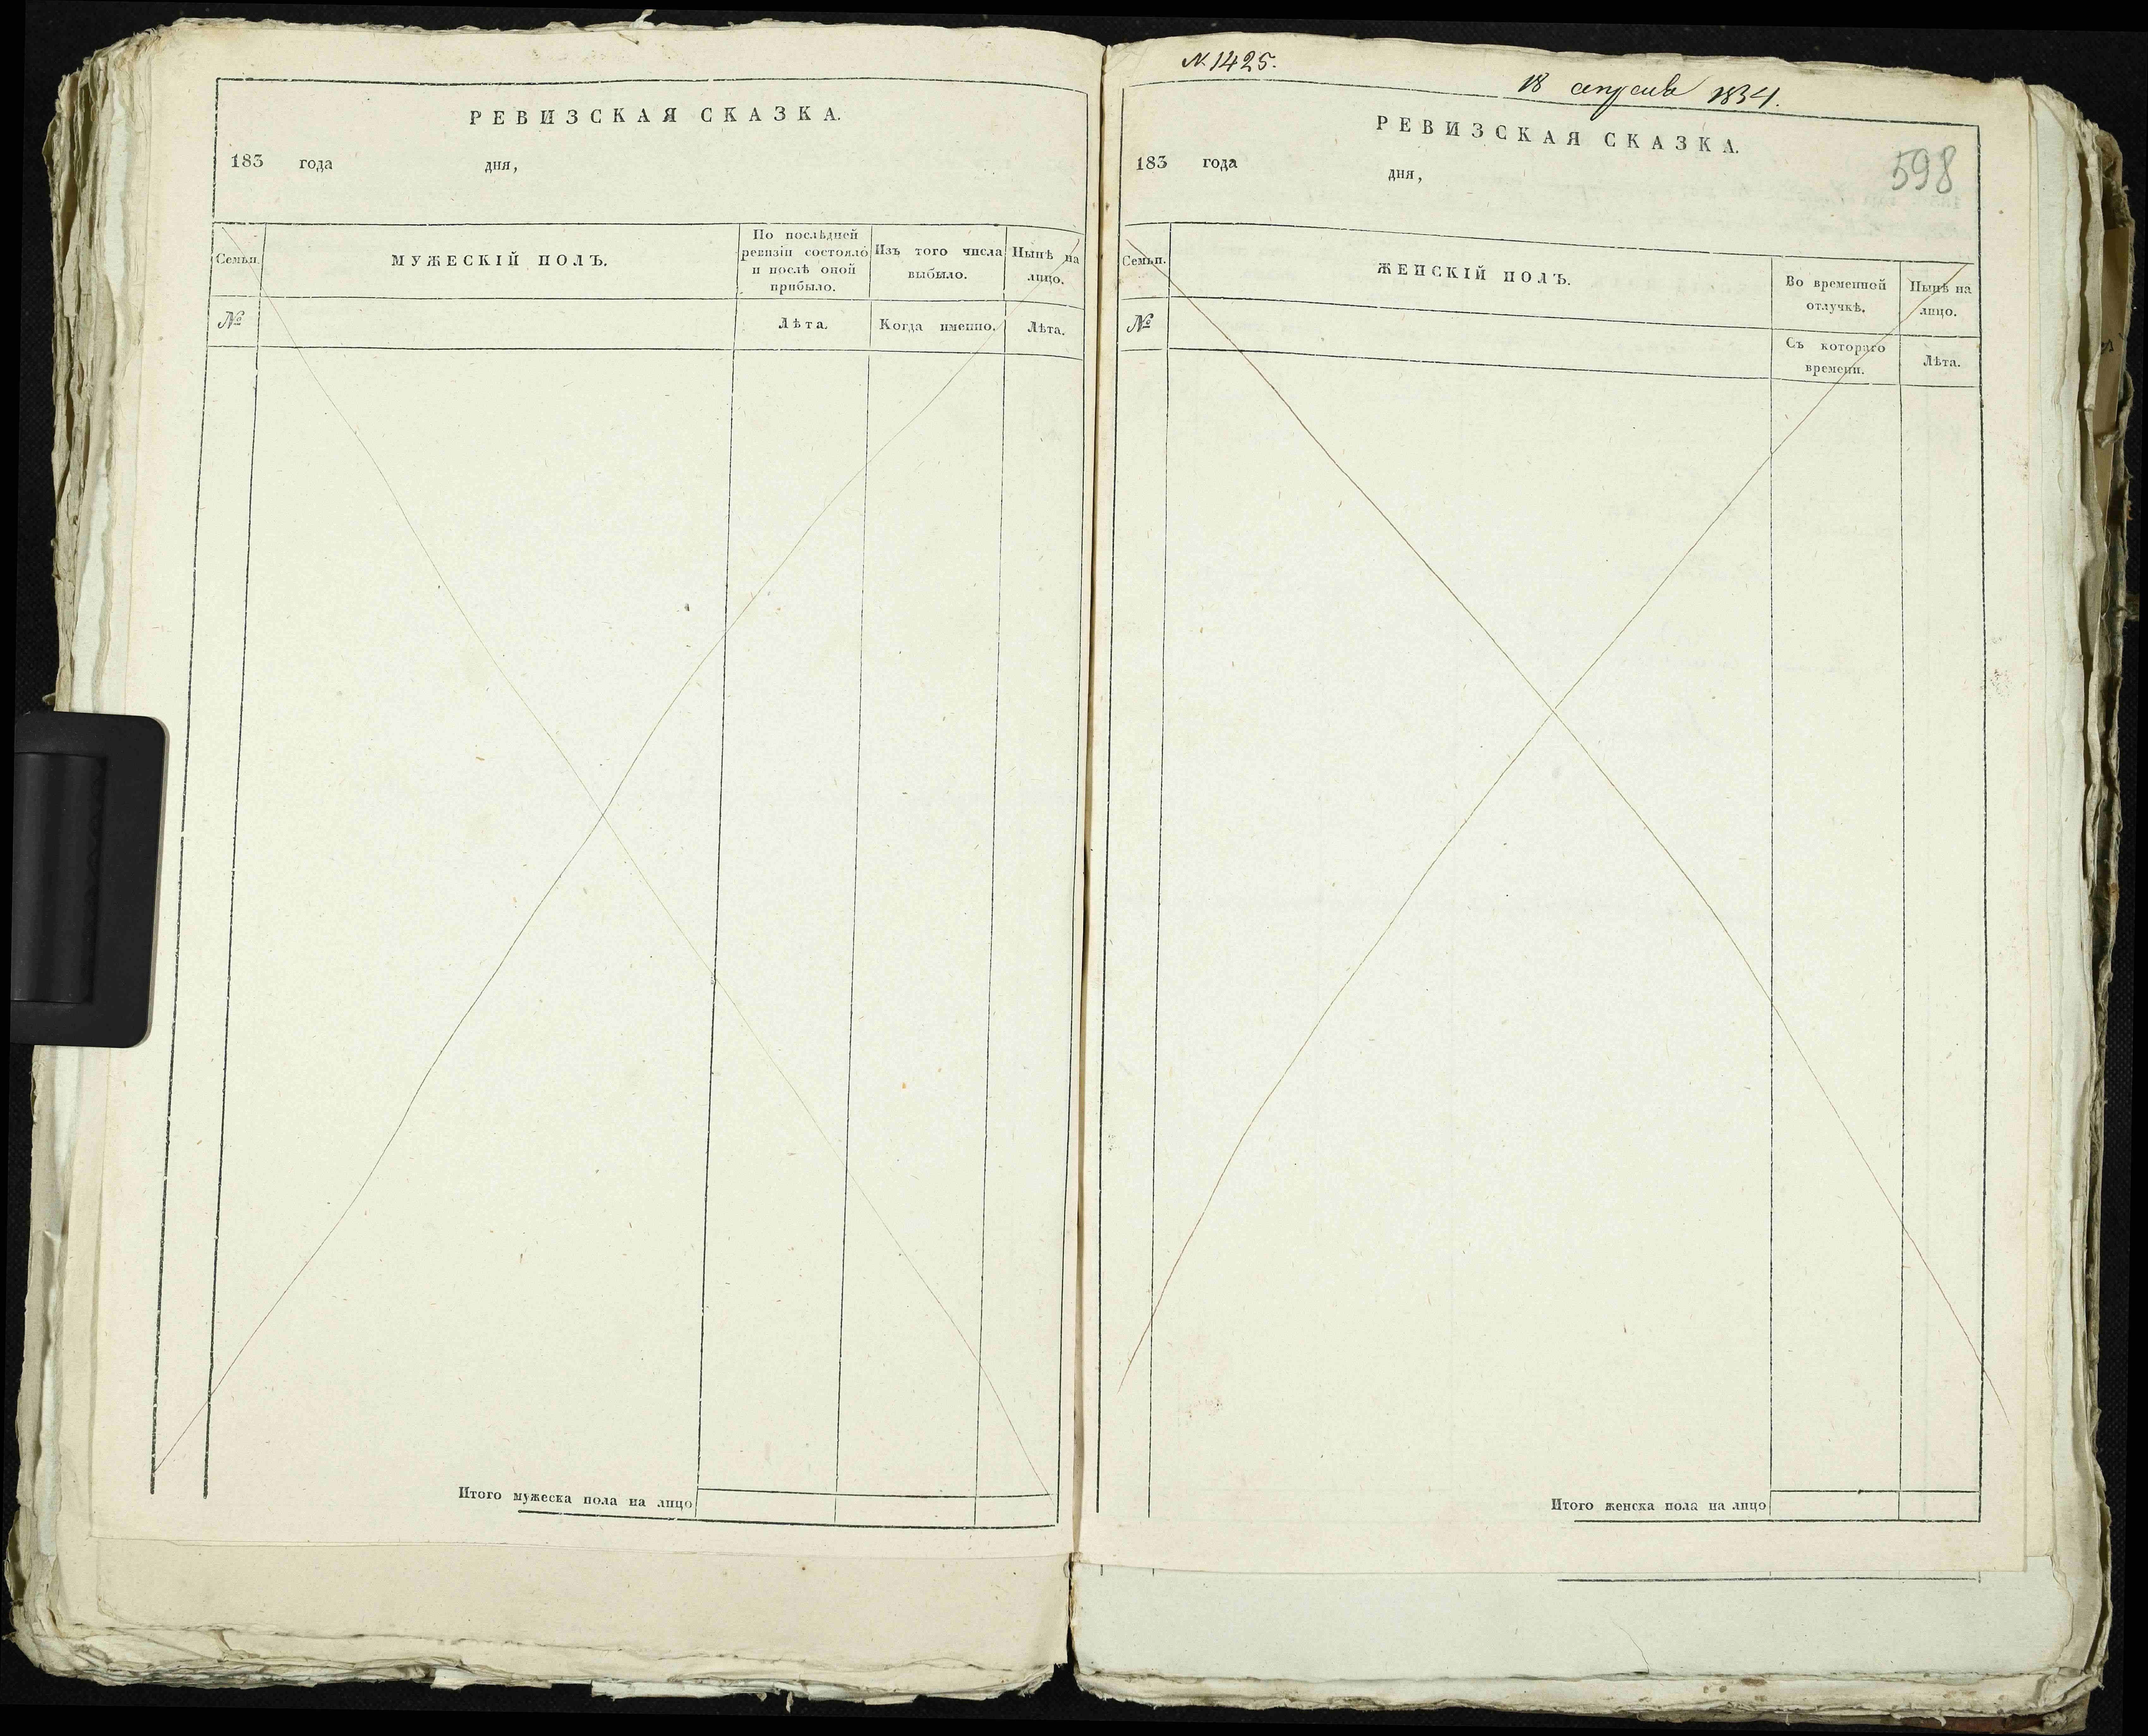 РЕВИЗСКАЯ СКАЗКА.
183 года дня,
Семьи.
МУЖЕСКІЙ ПОЛЪ.
По послѣдней
ревизіи состояло
и послѣ оной
прибыло.
Изъ того числа
выбыло.
Нынѣ на
лицо.
№
Лѣта.
Когда именно.
Лѣта.
Итого мужеска пола на лицо
N. 1425.
18 апреля 1834.
РЕВИЗСКАЯ СКАЗКА.
598
183 года дня,
Семьи.
ЖЕНСКІЙ ПОЛЪ.
Во временной
отлучкѣ.
Нынѣ на
лицо.
№
Съ котораго
времени.
Лѣта.
Итого женска пола на лицо